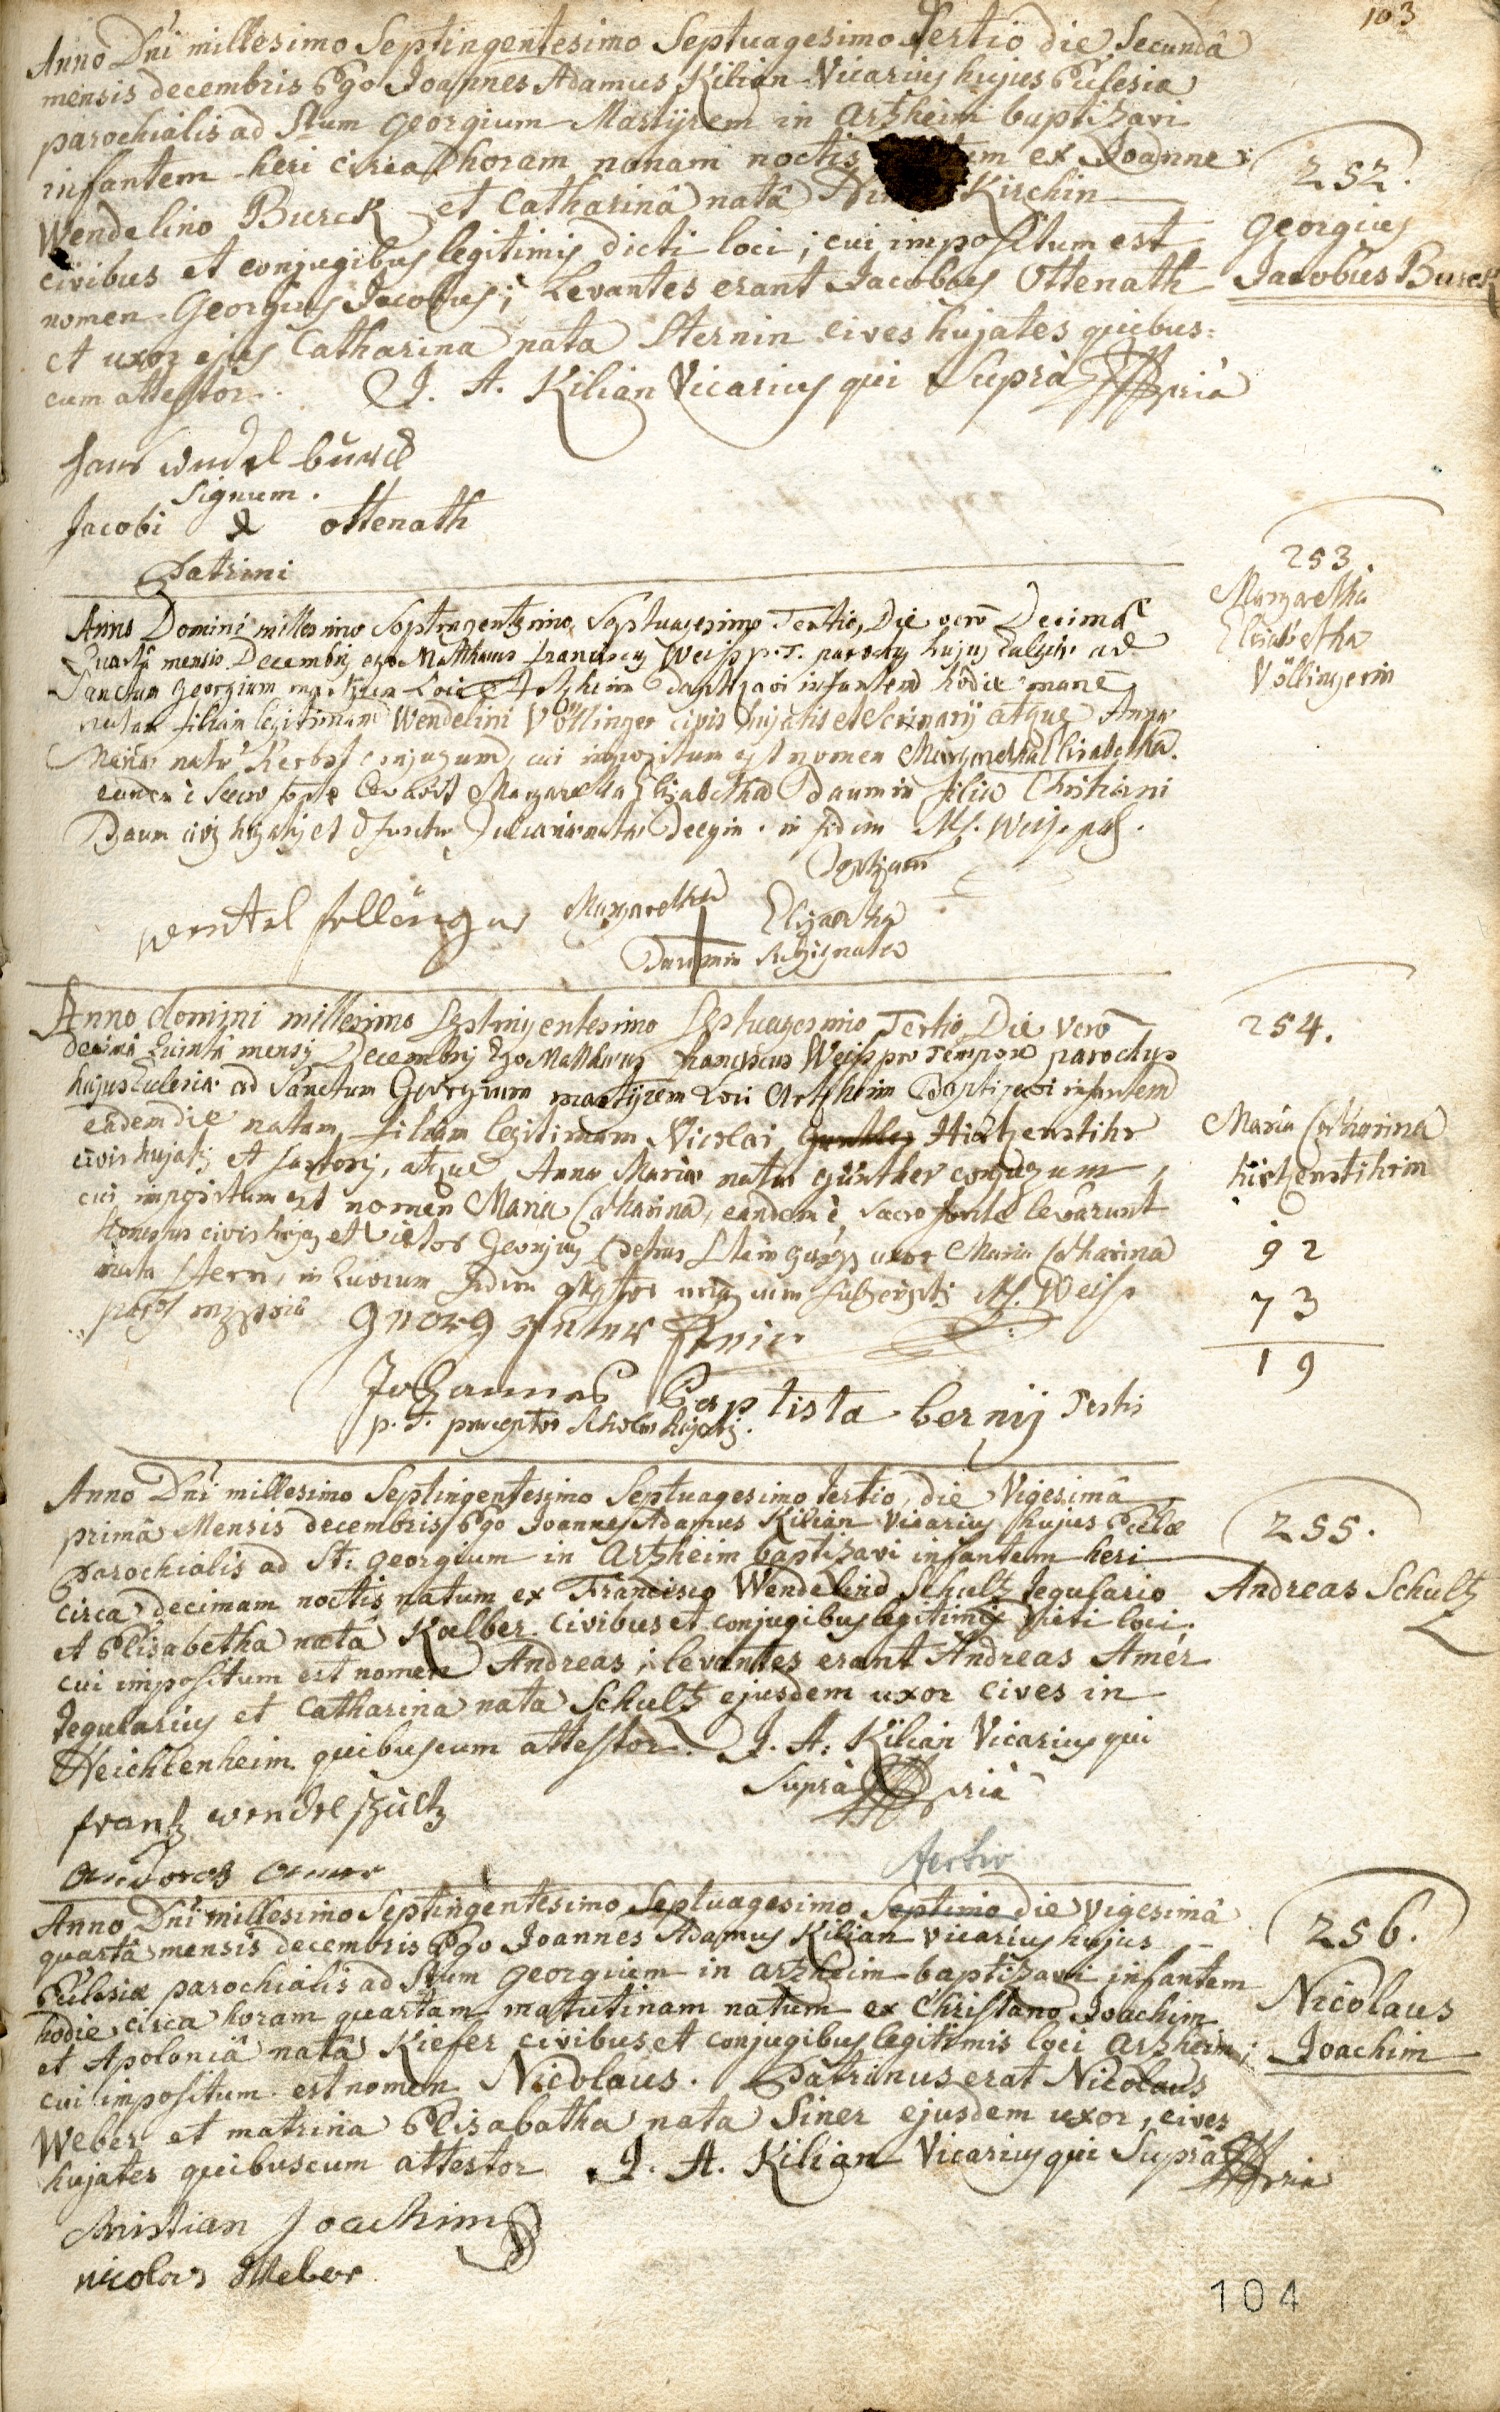 103
Anno Dni millesimo Septingentesimo Septuagesimo tertio die Secundâ
mensis decembris Ego Joannes Adamus Kilian Vicarius hujus Ecclesia
parochialis ad Stum Georgium Martyrem in Artzheim baptizavi
infantem heri circa horam nonam noctis ex Joanne
Wendelino Burck et Catharinâ natâ Kirchin
civibus et conjugibus legitimis dicti loci; cui impositum est
nomen Georgius Jacobus; Levantes erant Jacobus Ottenath
et uxor ejus Catharina nata Sternin cives hujates quibus=
cum attestor. J. A. Kilian Vicarius qui Suprà pria
252.
Georgius
Jacobus Burck
Hans wendel burck
Signum.
Jacobi ottenath
Patrini
253.
Margaretha
Elisabetha
Völlingerin
Anno Domini millesimo Septingentesimo Septuagesimo Tertio, Die verò Decimâ
Quartâ mensis Decembris ego Matthaeus Franciscus Weiss p. T. parochus hujus Ecclesiae ad
Sanctum Georgium martyrem Loci Artzheim baptizavi infantem hodie mane
natam filiam legitimam Wendelini Völlinger civis hujatis et Scrinarij atque Annae
Mariae natae Kerbs conjugum, cui impositum est nomen Margaretha Elisabetha.
eandem è sacro fonte levavit Margaretha Elisabetha Daumin filia Christiani
Daum civis hujatis et Julianae natae in fidem M. Weiss
wentel föllinger Margaretha Elisabetha
Daumin Subsignata
254.
Anno domini millesimo Septingentesimo Septuagesimo Tertio, Die verò
decimâ Quintâ mensis Decembris Ego Matthaeus Franciscus Weiss pro Tempore parochus
hujus Ecclesiae ad Sanctum Georgium martyrem Loci Artzheim baptizavi infantem
eâdem die natam, filiam legitimam Nicolai Günther Hirtzenstihr
civis hujatis et sartoris, atque Annae Mariae natae günther conjugum,
cui impositum est nomen Maria Catharina, eandem è sacro fonte levârunt
Honestus civis hujas et Viëtor Georgius Petrus Stein ejusque uxor Maria Catharina
nata Stern, in quorum fidem attestor unà cum subscriptis M. Weiss
Maria Catharina
hirtzenstihrin
92
73
19
Georg Peter Stein
Johannes Baptista bernij Testis
p. T. praeceptor Scholae hujatis.
Anno Dni millesimo Septingentesimo Septuagesimo tertio, die Vigesimâ
primâ Mensis decembris Ego Joannes Adamus Kilian Vicarius hujus Eclae
Parochialis ad St: Georgium in Artzheim baptizavi infantem heri
circa decimam noctis natum ex Francisco Wendelino Schultz Tegulario
et Elisabetha natâ Kalber civibus et conjugibus legitimis dicti loci.
cui impositum est nomen Andreas; levantes erant Andreas Amer
Tegularius et Catharina nata Schultz ejusdem uxor cives in
Heichlenheim quibuscum attestor. J. A. Kilian Vicarius qui
Suprà pria
255.
Andreas Schultz
frantz wendel schultz
Andreas amer
tertio
Anno Dni millesimo Septingentesimo Septuagesimo Septimo die vigesimâ
quartâ mensis decembris Ego Joannes Adamus Kilian vicarius hujus
Ecclesiae parochialis ad Stum Georgium in Artzheim baptizavi infantem
hodie circa horam quartam matutinam natum ex Christano Joachim
et Apoloniâ natâ Kiefer civibus et conjugibus legitimis loci Artzheim;
cui impositum est nomen Nicolaus. Patrinus erat Nicolaus
Weber et matrina Elisabatha nata Siner ejusdem uxor, cives
hujates quibuscum attestor J. A. Kilian Vicarius qui Suprà pria
256.
Nicolaus
Joachim
Christian Joachim
nicolas Weber
104